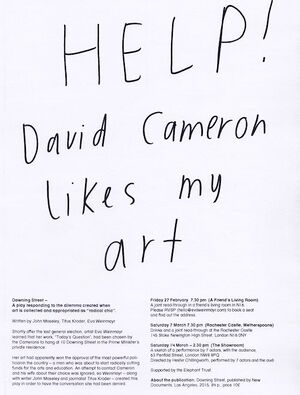 HELP!
David Cameron
likes my
art
Downing Street –
A play responding to the dilemma created when
art is collected and appropriated as "radical chic".
Written by John Moseley, Titus Kroder, Eva Weinmayr
Shortly after the last general election, artist Eva Weinmayr
learned that her work, "Today's Question", had been chosen by
the Camerons to hang at 10 Downing Street in the Prime Minister's
private residence.
Her art had apparently won the approval of the most powerful
in the country – a man who was about to start radically cutting
funds for the arts and education. An attempt to contact Cameron
and his wife about their choice was ignored, so Weinmayr – along
with writer John Moseley and journalist Titus Kroder – created this
play in order to have the conversation she had been denied.
Friday 27 February 7.30 pm (A Friend's Living Room)
A joint read-through in a friend's living room in N16.
Please RSVP to book a seat
and find out the address.
Saturday 7 March 7.30 pm (Rochester Castle, Wetherspoons)
Drinks and a joint read-through at the Rochester Castle
145 Stoke Newington High Street, London N16 0NY
Saturday 14 March – 2.30 pm (The Showroom)
A sketch of a performance by 7 actors, with the audience.
63 Penfold Street, London NW8 8PQ
Directed by Hester Chillingworth, performed by 7 actors and the audi
Supported by the Elephant Trust
About the publication: Downing Street, published by New
Documents, Los Angeles, 2015, pp., price 10£